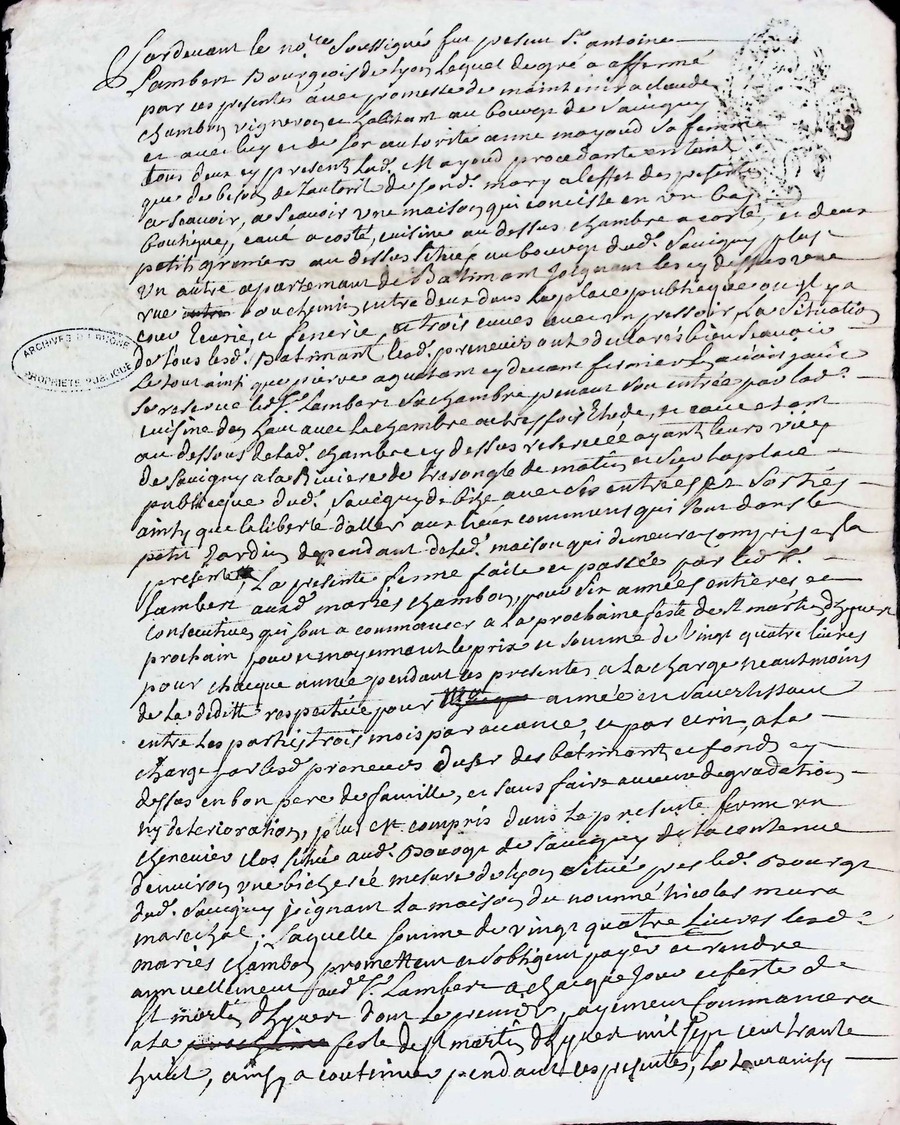 Pardevant le no.re Soussigné fut présent Sr. antoine
Lambert Bourgeois de Lyon Lequel de gré a affermé
par ces presentes avec promesse de maintenir a claude
chambon vigneron habitant au bourg de Savigny
et avec luy et de son autorité anne mayoud sa femme
tous deux cy present lad. Mayoud procedante en tant
que de besoin de l'autorité de sond. mary a l'effet des presentes
a scavoir, a scavoir une maison qui conciste en un bas
boutique, cave a costé, cuisine au dessus, chambre a costé, et deux
petit greniers au dessus situés au bourg dud. Savigny plus
un autre apartemant de Batimant Joignant les cy dessus une
rue ou chemin entre deux dans la place publique ou il y a
cour Ecurie, et fenerie, et trois cuves avec un pressoir La Situation
de tous lesd. Batimant lesd. preneurs ont declarés bien scavoir
Le tout ainsi que pierre aguetam cy devant fermier la avoir jouit
Se reserve led. Sr. Lambert Sa chambre prenant son entrée par lad.
cuisine den hau avec la chambre autrefois Etude, et cave etant
au dessous de lad. chambre cy dessus reservéé ayant leurs vües
de Savigny a la Riviere de tresongle de matin et sur la place
publicque dud. Savigny de bize avec ses entrées et Sorties
ainsy que la liberté d'aller aux lieux communs qui sont dans le
petit Jardin dependant de lad. maison qui demeure comprise en la
presente, La presente ferme faite et passée par led. Sr.
Lambert aud. mariés chambon, pour six années entières et
consecutives qui sont a commancer a la prochaine feste de St martin dhyvert
prochain pour et moyennant le prix et somme de vingt quatre livres
pour chacque année pendant les presentes a la charge neautmoins
de la deditte respective pour année en s'avertissant
entre les parties trois mois par avance, et par ecrit, a la
charge par lesd. preneurs d'user des batimant et fonds cy
dessus en bon pere de famille, et sans faire aucune degradation
ny deterioration, plus est compris dans la presente ferme un
chenevier clos situé aud. Bourg de Savigny de la contenue
denviron une bicheréé mesure de Lyon situé pres led. Bourg
dud. Savigny joignant la maison du nommé nicolas mura
marechal. Laquelle somme de vingt quatre Livres lesd.
mariés chambon promettent et s'obligent payer et rendre
annuellement aud. Sr. Lambert a chacque jour et feste de
St martin dhyvert dont le premier payement commancera
a la feste de St martin dhyvert mil sept cent trante
huit, ainsy a continuer pendant les presentes,
ARCHIVES DU RHONE
PROPRIÉTÉ PUBLIQUE